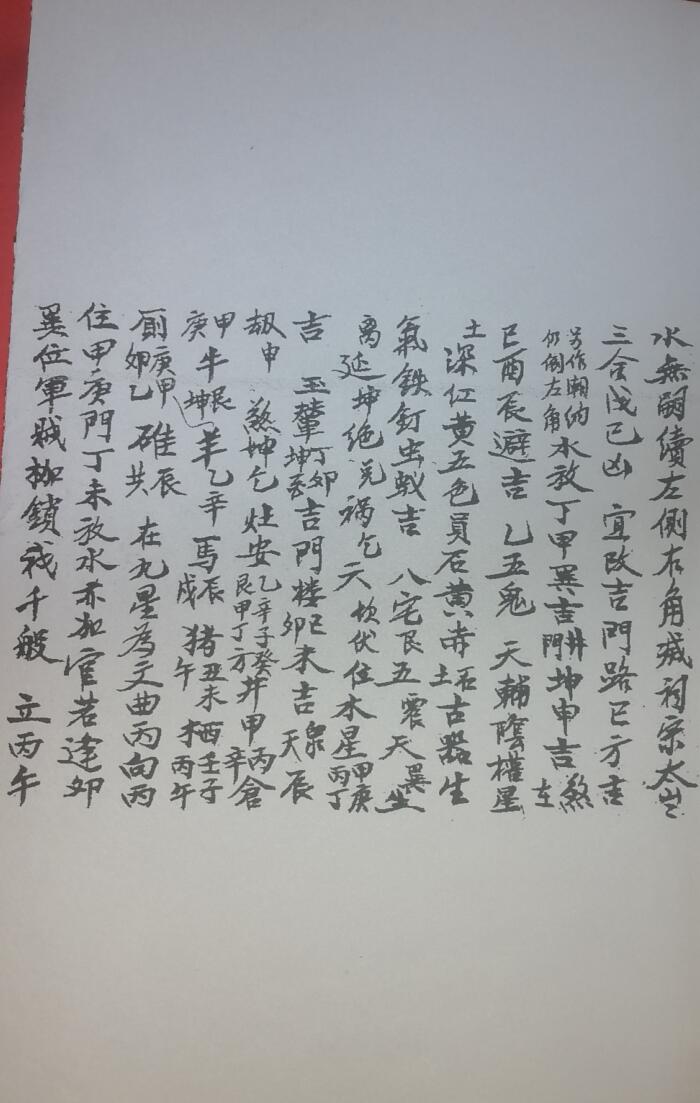 水無嗣續左側右角藏祠宗太岁
三合戊己凶 宜改吉門路巳方吉
另作潮納仍倒左角水放丁甲巽吉井門坤申吉煞在
巳酉辰避吉 乙五鬼 天輔蔭權星
土深红黄五色員石黄赤石土古器生
氣鉄釘虫蚁吉 八宅艮五震天巽生
离延坤绝兑祸乞六坎伏位水星甲庚丙丁
吉 玉輦丁卯坤吉門楼巳卯未吉 天辰
刼申 煞坤乞灶安乙辛子癸艮甲丁方井甲丙辛倉
甲庚牛艮坤羊乙辛馬辰戌猪丑未午栖壬子丙午
厠庚甲卯乙碓辰 在九星為文曲丙向丙
住甲庚門丁未放水亦加官若逢卯
巽位軍贼枷鎖我千般 立丙午